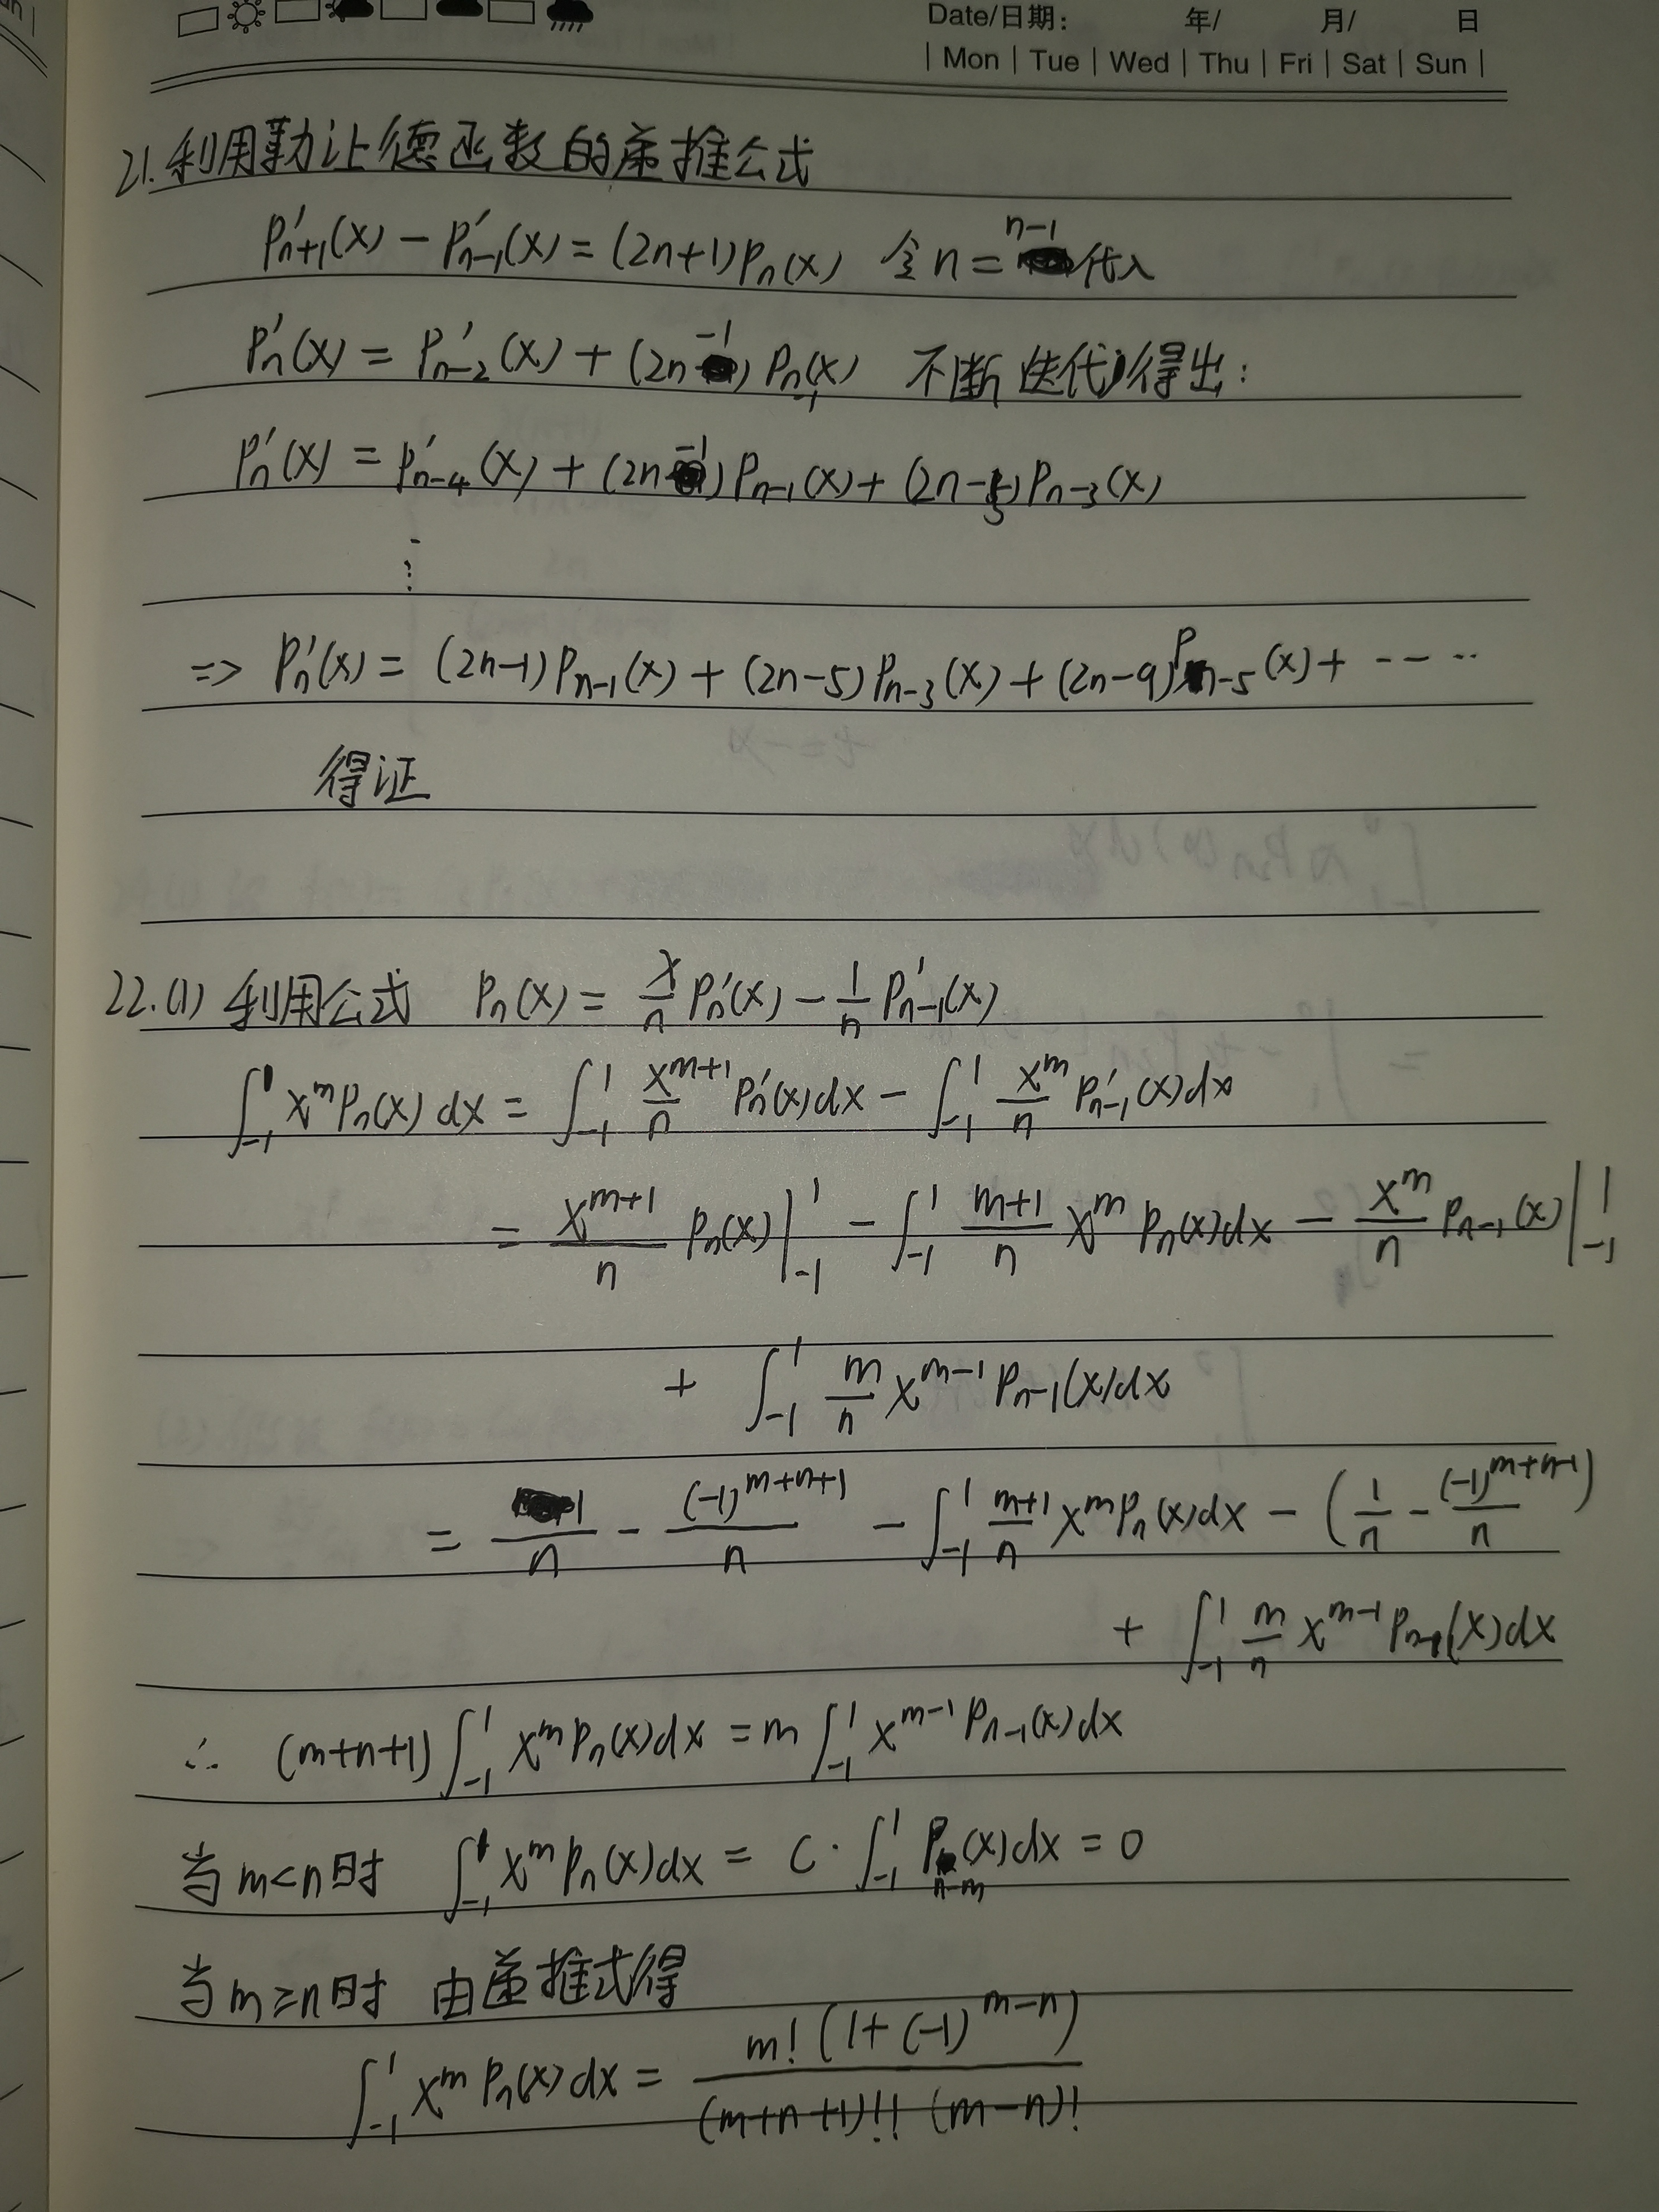 Date/日期: 年/ 月/ 日
| Mon | Tue | Wed | Thu | Fri | Sat | Sun |
21.利用勒让德函数的递推公式
P'n+1(x) - P'n-1(x) = (2n+1)Pn(x) 令n = n-1 代入
P'n(x) = P'n-2(x) + (2n-1)Pn-1(x) 不断迭代得出:
P'n(x) = P'n-4(x) + (2n-1)Pn-1(x) + (2n-5)Pn-3(x)
⋮
=> P'n(x) = (2n-1)Pn-1(x) + (2n-5)Pn-3(x) + (2n-9)Pn-5(x) + -----
得证
22.(1) 利用公式 Pn(x) = x/n P'n(x) - 1/n P'n-1(x)
∫_{-1}^{1} x^m Pn(x) dx = ∫_{-1}^{1} x^{m+1}/n P'n(x)dx - ∫_{-1}^{1} x^m/n P'n-1(x)dx
= x^{m+1}/n Pn(x)|_{-1}^{1} - ∫_{-1}^{1} (m+1)/n x^m Pn(x)dx - x^m/n Pn-1(x)|_{-1}^{1}
+ ∫_{-1}^{1} m/n x^{m-1} Pn-1(x)dx
= 1/n - (-1)^{m+n+1}/n - ∫_{-1}^{1} (m+1)/n x^m Pn(x)dx - (1/n - (-1)^{m+n-1}/n)
+ ∫_{-1}^{1} m/n x^{m-1} Pn-1(x)dx
∴ (m+n+1)∫_{-1}^{1} x^m Pn(x)dx = m∫_{-1}^{1} x^{m-1} Pn-1(x)dx
当m<n时 ∫_{-1}^{1} x^m Pn(x)dx = C·∫_{-1}^{1} Pn-m(x)dx = 0
当m≥n时 由递推式得
∫_{-1}^{1} x^m Pn(x)dx = m!(1+(-1)^{m-n}) / (m+n+1)!! (m-n)!